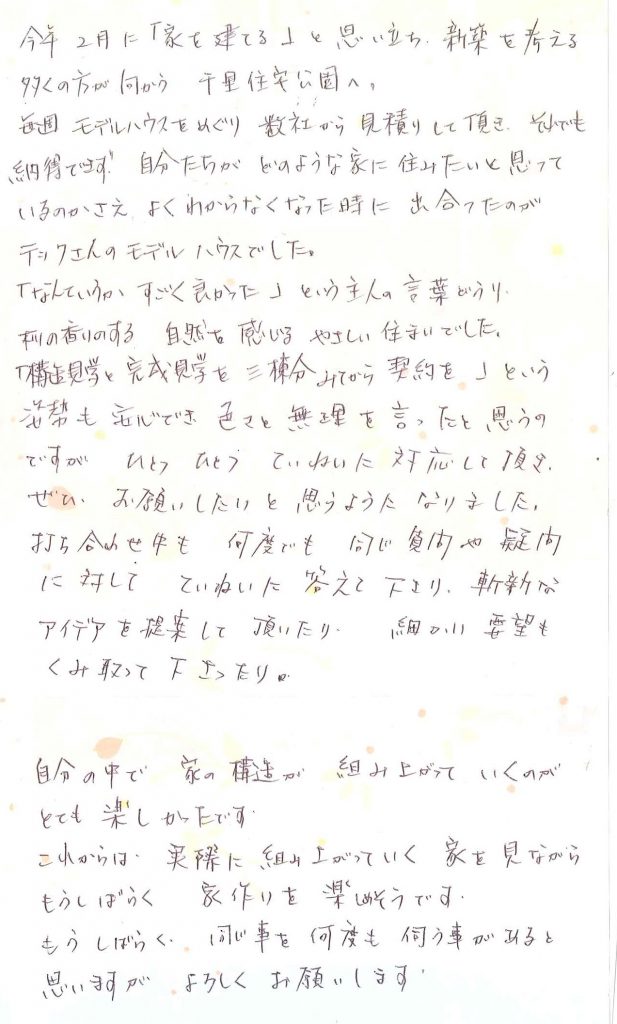 今年 2月に「家を建てる」と思い立ち、新築を考える
多くの方が向かう 千里住宅公園へ。
毎週 モデルハウスをめぐり 数社から見積りして頂き、それでも
納得できず、自分たちが どのような家に住みたいと思って
いるのかさえ、よくわからなくなった時に 出合ったのが
デックさんのモデルハウスでした。
「なんていうか、すごく良かった」という主人の言葉どうり、
木の香りのする 自然を感じる やさしい住まいでした。
「構造見学と完成見学を三棟分みてから契約を」という
姿勢も安心でき 色々と無理を言ったと思うの
ですが ひとつ ひとつ ていねいに対応して頂き、
ぜひ、お願いしたいと思うようになりました。
打ち合わせ中も 何度でも 同じ質問や疑問
に対して ていねいに答えて下さり、斬新な
アイデアを提案して 頂いたり、 細かい要望も
くみ取って下さったり。
自分の中で 家の構造が 組み上がって いくのが
とても楽しかったです。
これからは、実際に組み上がっていく 家を見ながら
もうしばらく 家作りを楽しめそうです。
もうしばらく、同じ事を何度も伺う事があると
思いますが よろしくお願いします。